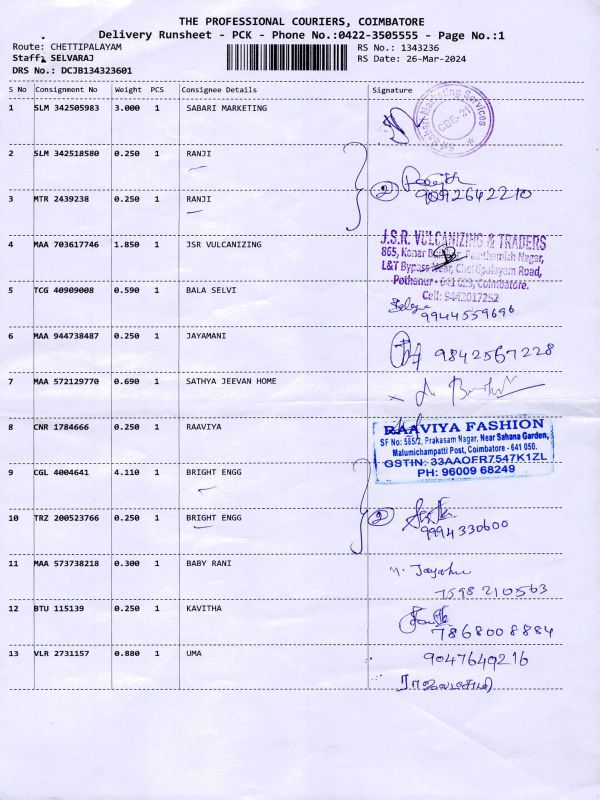 THE PROFESSIONAL COURIERS, COIMBATORE
Delivery Runsheet - PCK - Phone No.:0422-3505555 - Page No.:1
Route: CHETTIPALAYAM
RS No.: 1343236
Staff: SELVARAJ
RS Date: 26-Mar-2024
DRS No.: DCJB134323601
S No Consignment No Weight PCS Consignee Details Signature
1 SLM 342505983 3.000 1 SABARI MARKETING
Sri Sabari Marketing Services
CBE-21
2 SLM 342518580 0.250 1 RANJI
2
9092642210
3 MTR 2439238 0.250 1 RANJI
4 MAA 703617746 1.850 1 JSR VULCANIZING
J.S.R. VULCANIZING & TRADERS
865, Konar Nagar,
L&T Bypass Near, Chettipalayam Road,
Pothanur - 641 023, Coimbatore.
Cell: 9442017252
5 TCG 40909008 0.590 1 BALA SELVI
9944559696
6 MAA 944738487 0.250 1 JAYAMANI
9842567228
7 MAA 572129770 0.690 1 SATHYA JEEVAN HOME
8 CNR 1784666 0.250 1 RAAVIYA
RAAVIYA FASHION
SF No: 565/2, Prakasam Nagar, Near Sahana Garden,
Malumichampatti Post, Coimbatore - 641 050.
GSTIN: 33AAOFR7547K1ZL
PH: 96009 68249
9 CGL 4004641 4.110 1 BRIGHT ENGG
10 TRZ 200523766 0.250 1 BRIGHT ENGG
2
9994330600
11 MAA 573738218 0.300 1 BABY RANI
7598210563
12 BTU 115139 0.250 1 KAVITHA
7868008884
13 VLR 2731157 0.880 1 UMA
9047649216